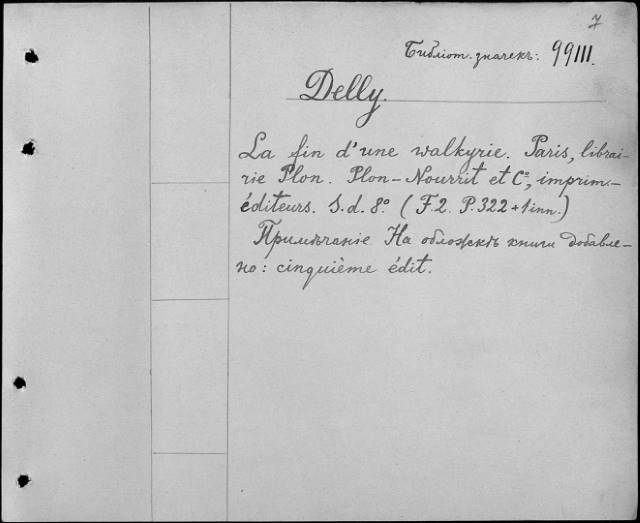 7
Библіот. значекъ: 99III.
Delly.
La fin d'une walkyrie. Paris, librai-
rie Plon. Plon-Nourrit et Cⁱᵉ, imprim.-
éditeurs. S. d. 8.° (F. 2. P. 322 + 1 inn.)
Примѣчаніе На обложкѣ книги добавле-
но: cinquième édit.